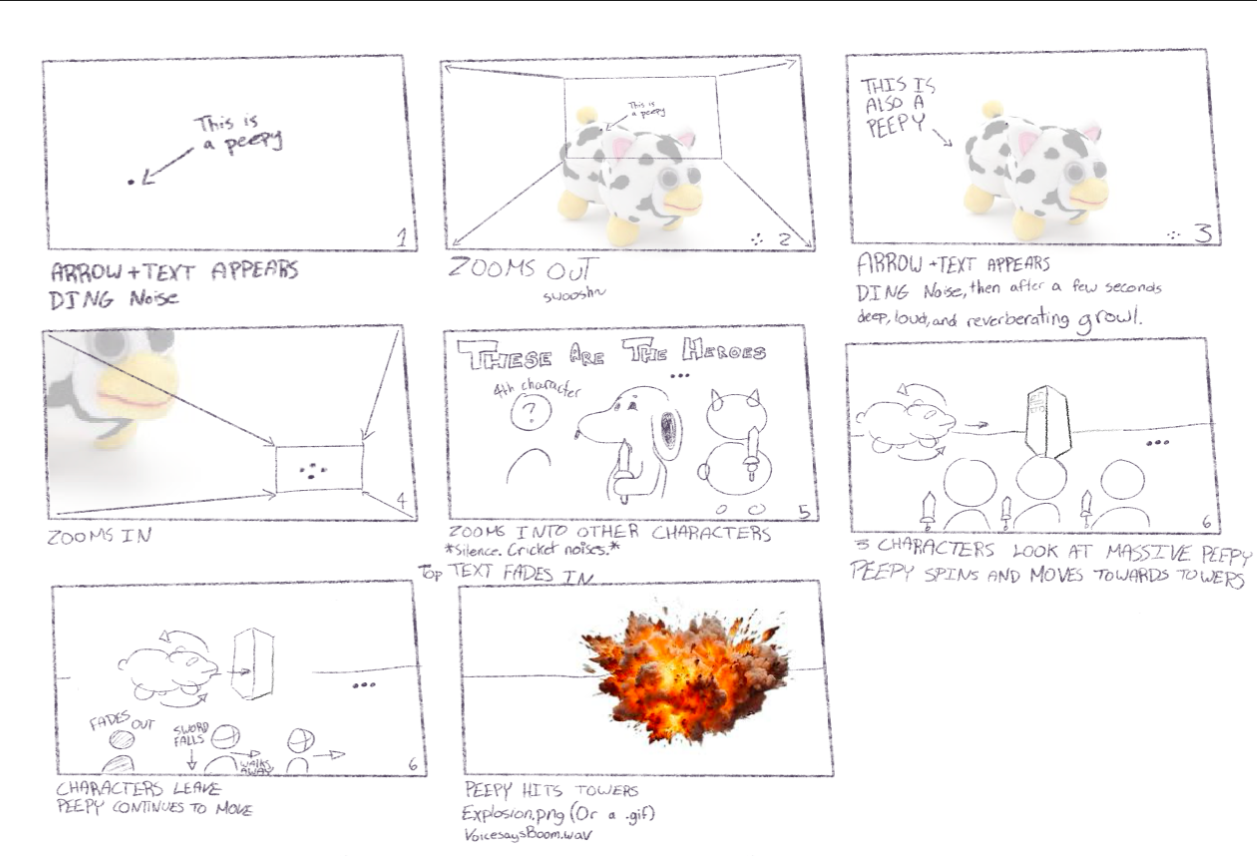 This is
a peepy
1
ARROW + TEXT APPEARS
DING Noise
This is
a peepy
2
ZOOMS OUT
swoosh~
THIS IS
ALSO A
PEEPY
3
ARROW + TEXT APPEARS
DING Noise, then after a few seconds
deep, loud, and reverberating growl.
4
ZOOMS IN
THESE ARE THE HEROES
...
4th character
?
5
ZOOMS INTO OTHER CHARACTERS
*Silence. Cricket noises.*
Top TEXT FADES IN
6
3 CHARACTERS LOOK AT MASSIVE PEEPY
PEEPY SPINS AND MOVES TOWARDS TOWERS
FADES OUT
SWORD
FALLS
WALKS
AWAY
6
CHARACTERS LEAVE
PEEPY CONTINUES TO MOVE
PEEPY HITS TOWERS
Explosion.png (Or a .gif)
VoicesaysBoom.wav